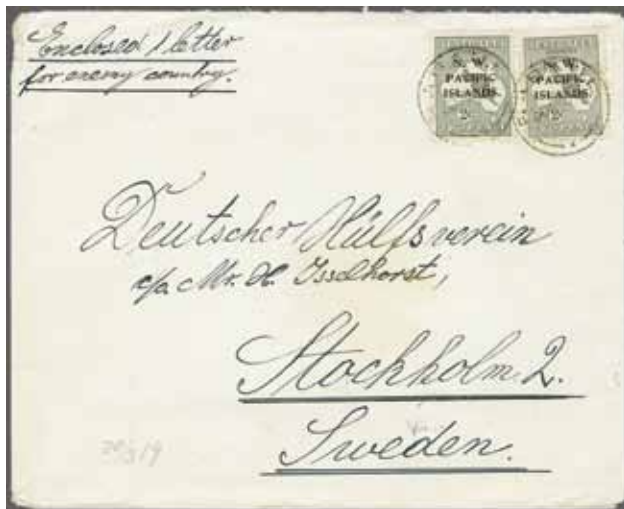 Enclosed 1 letter
for enemy country.
N. W.
PACIFIC
ISLANDS.
2
N. W.
PACIFIC
ISLANDS.
2
Deutscher Hülfsverein
c/o Mr. H. Isselhorst,
Stockholm 2.
Sweden.